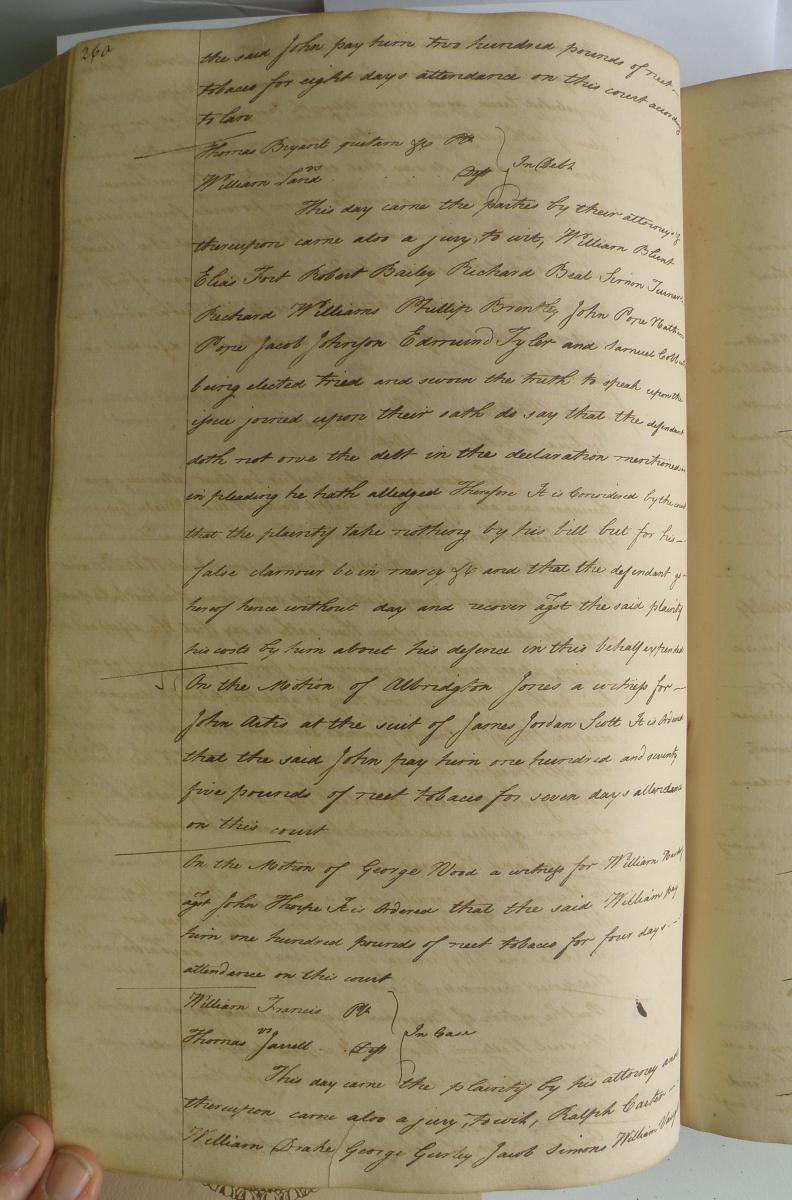 260
the said John pay him two hundred pounds of neet
tobacco for eight days attendance on this court according
to law
Thomas Bryant quitam &c Plt
vs In Debt
William Land Deft
This day came the parties by their attorneys
thereupon came also a jury, to wit, William Blunt
Elias Fort Robert Bailey Richard Beal Simon Turner
Richard Williams Phillip Brantley John Pope Nathan
Pope Jacob Johnson Edmund Tyler and Samuel
being elected tried and sworn the truth to speak upon the
issue joined upon their oath do say that the defendant
doth not owe the debt in the declaration mentioned as
in pleading he hath alledged Therefore It is Considered by the court
that the plaintif take nothing by his bill but for his
false clamour be in mercy &c and that the defendant go
hereof hence without day and recover agst the said plaintif
his costs by him about his defence in this behalf expended
On the Motion of Albridgton Jones a witness for
John Artis at the suit of James Jordan Scott It is Ordered
that the said John pay him one hundred and seventy
five pounds of neet tobacco for seven days attendance
on this court
On the Motion of George Wood a witness for William
agst John Thorpe It is Ordered that the said William pay
him one hundred pounds of neet tobacco for four days
attendance on this court
William Francis Plt
vs In Case
Thomas Jarrell Deft
This day came the plaintif by his attorney and
thereupon came also a jury, to wit, Ralph Carter
William Drake George Gurley Jacob Simons William